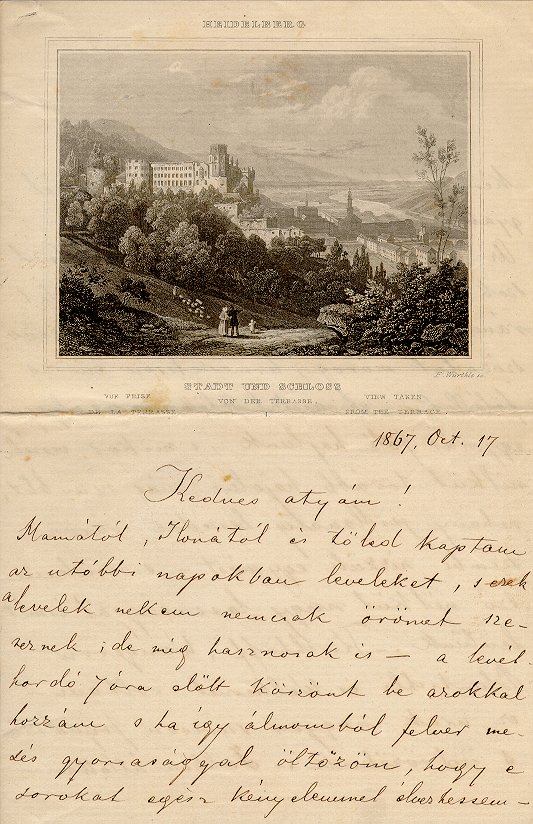 HEIDELBERG
F. Würthle sc.
STADT UND SCHLOSS
VUE PRISE VON DER TERRASSE. VIEW TAKEN
DE LA TERRASSE FROM THE TERRACE.
1867, Oct. 17
Kedves atyám!
Mamától, Ilonától és töled kaptam
az utóbbi napokban leveleket, s ezek
a levelek nekem nemcsak örömet sze-
reznek, de még hasznosak is — a levél-
hordó 7 óra előtt köszönt be azokkal
hozzám s ha így álmomból felver me-
sés gyorsasággal öltözöm, hogy e
sorokat egész kényelemmel élvezhessem —